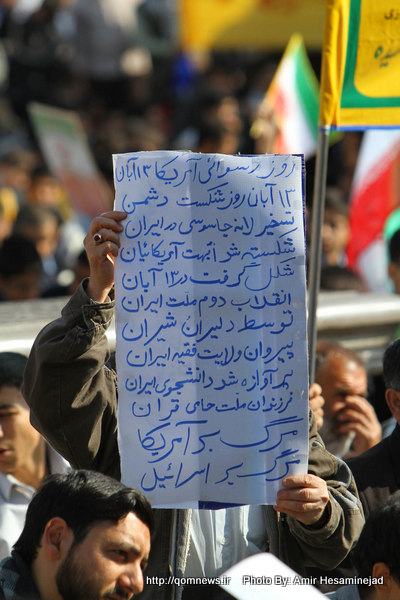 روز رسوائی آمریکا ۱۳ آبان
۱۳ آبان روز شکست دشمن
تسخیر لانه جاسوسی در ایران
شکسته شد ابهت آمریکائیان
شکل گرفت در ۱۳ آبان
انقلاب دوم ملت ایران
توسط دلیران شیران
پیروان ولایت فقیه ایران
پر آوازه شد دانشجوی ایران
فرزندان ملت حامی قرآن
مرگ بر آمریکا
مرگ بر اسرائیل
http://qomnews.ir Photo By: Amir Hesaminejad